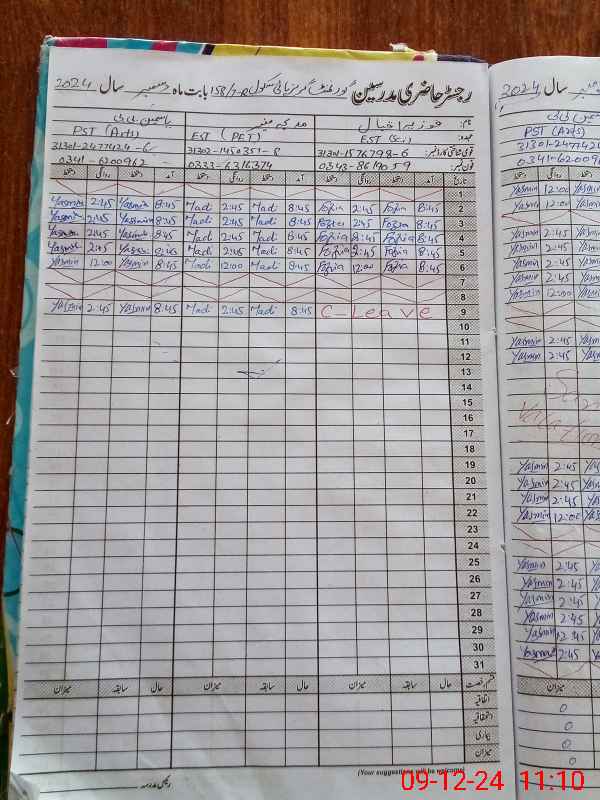 رجسٹر حاضری مدرسین گورنمنٹ گرلز ہائی سکول 158/7-R بابت ماہ دسمبر سال 2024
نام: فوزیہ اقبال
یاسمین بی بی
عہدہ: EST (Sci) EST (PET) PST (Arts)
قومی شناختی کارڈ نمبر: 31301-1576798-6 31302-1450351-8 31301-2477424-6
فون نمبر: 0343-8619059 0333-6316374 0341-6200962
تاریخ آمد دستخط روانگی دستخط آمد دستخط روانگی دستخط آمد دستخط روانگی دستخط
1
Yasmin 2:45 Yasmin 8:45 Madi 2:45 Madi 8:45 Fozia 2:45 Fozia 8:45 2
Yasmin 2:45 Yasmin 8:45 Madi 2:45 Madi 8:45 Fozia 2:45 Fozia 8:45 3
Yasmin 2:45 Yasmin 8:45 Madi 2:45 Madi 8:45 Fozia 2:45 Fozia 8:45 4
Yasmin 2:45 Yasmin 8:45 Madi 2:45 Madi 8:45 Fozia 2:45 Fozia 8:45 5
Yasmin 12:00 Yasmin 8:45 Madi 12:00 Madi 8:45 Fozia 12:00 Fozia 8:45 6
7
8
Yasmin 2:45 Yasmin 8:45 Madi 2:45 Madi 8:45 C-Leave 9
10
11
12
13
14
15
16
17
18
19
20
21
22
23
24
25
26
27
28
29
30
31
قسم رخصت حال سابقہ میزان حال سابقہ میزان حال سابقہ میزان
اتفاقیہ
استحقاقیہ
بیماری
میزان
(Your suggestions will be welcome)
رئیس مدرسہ
سال 2024
یاسمین بی بی
PST (Arts)
31301-247742
0341-620096
Yasmin 12:00 Yas
Yasmin 12:00
Yasmin 2:45 Yas
Yasmin 2:45
Yasmin 2:45
Yasmin 2:45
Yasmin 12:00
Yasmin 2:45 Yasm
Yasmin 2:45 Yas
Yasmin 2:45 Yas
Yasmin 2:45 Yas
Yasmin 2:45 Yas
Yasmin 12:00 Yas
Yasmin 2:45 Yas
Yasmin 2:45
Yasmin 2:45
Yasmin 2:45
Yasmin 12:45
Yasmin 2:45
میزان
0
0
0
0
09-12-24 11:10